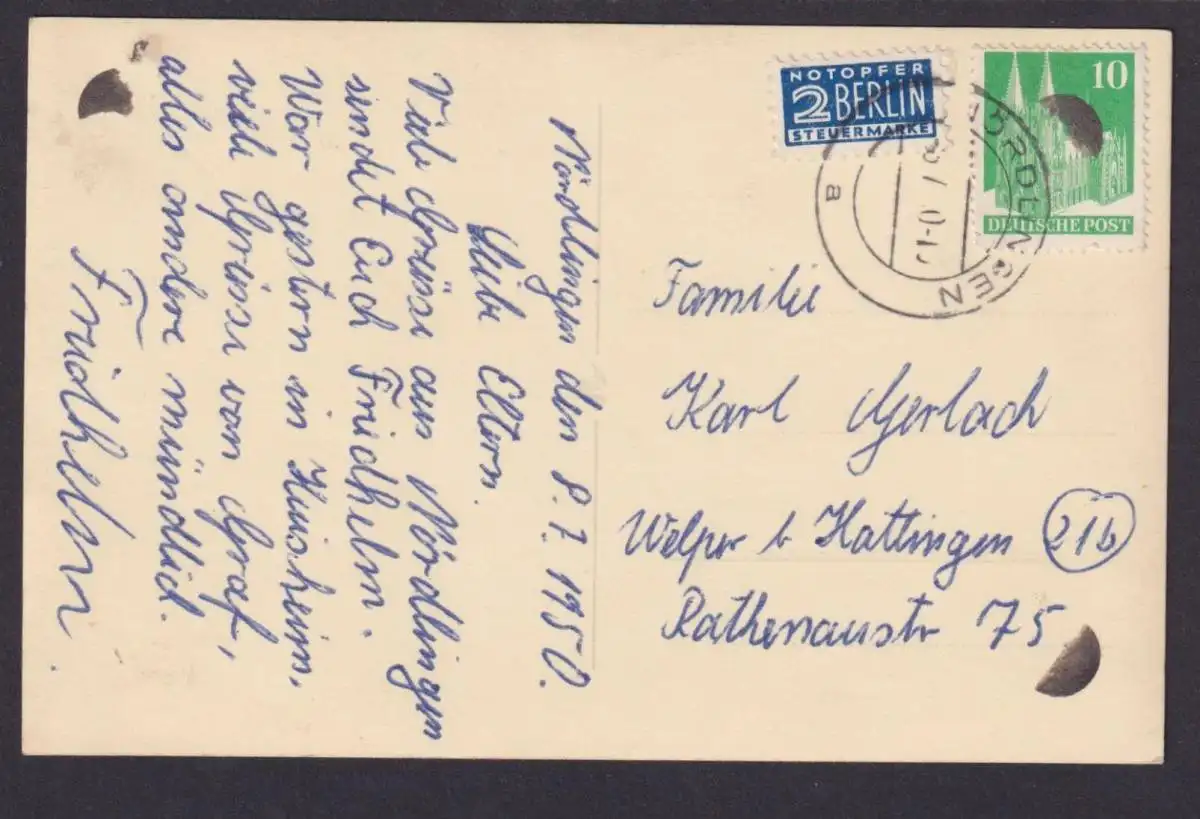 Nördlingen den 8.7.1950.
Liebe Eltern.
Viele Grüsse aus Nördlingen
sendet Euch Friedhelm.
War gestern in Huisheim,
viele Grüsse von Graf,
alles andere mündlich.
Friedhelm.
NOTOPFER
2 BERLIN
STEUERMARKE
10
DEUTSCHE POST
NÖRDLINGEN
a
Familie
Karl Gerlach
Welper b Hattingen 21b
Rathenaustr 75